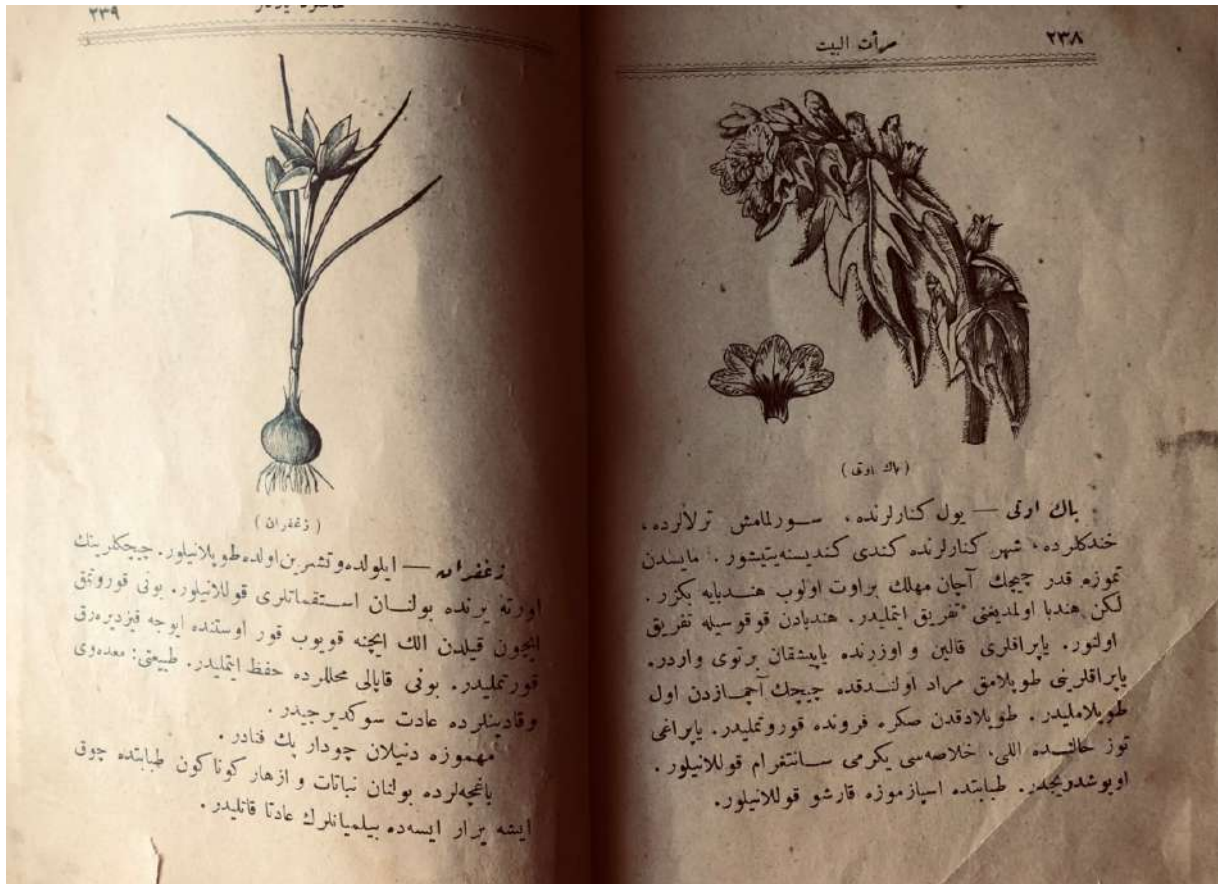 ٢٣٨
مرأت البيت
( باك اوتى )
باك اوتى — يول كنارلرنده ، سـورلمامش ترلالرده ،
خندكلرده ، شهر كنارلرنده كندى كندیسنه يتيشور . مايسدن
تموزه قدر چيچك آچان مهلك براوت اولوب هنـدبايه بكزر .
لكن هندبا اولمديغنى تفريق ايتمليدر . هندبادن قوقوسيله تفريق
اولنور . ياپراقلرى قالين و اوزرنده ياپيشقان برتوى واردر .
ياپراقلرينى طوپلامق مراد اولنـدقده چيچك آچمـازدن اول
طوپلامليدر . طوپلادقدن صكره فرونده قوروتمليدر . ياپراغى
توز حالنـده اللى ، خلاصه‌سى يكرمى سـانتغرام قوللانيلور .
اويوشدريجيدر . طبابتده اسپازموزه قارشو قوللانيلور .
٢٣٩
( زعفران )
زعفران — ايلولده و تشرين اولده طوپلانيلور . چيچكلرينك
اورته يرنده بولنـان اسـتقماتلرى قوللانيلور . بونى قوروتمق
ايچون قيلدن الك ايچنه قويوب قور اوستنده ايوجه قيزديره‌رق
قورتمليدر . بونى قاپالى محللرده حفظ ايتمليدر . طبيعتى : معده‌وى
وقادينلرده عادت سوكديرجيدر .
مهموزه دنيلان چودار پك فنادر .
باغچه‌لرده بولنان نباتات و ازهار كوناكون طبابتده چوق
ايشه يرار ايسه‌ده بيلميانلرك عادتا قاتليدر .